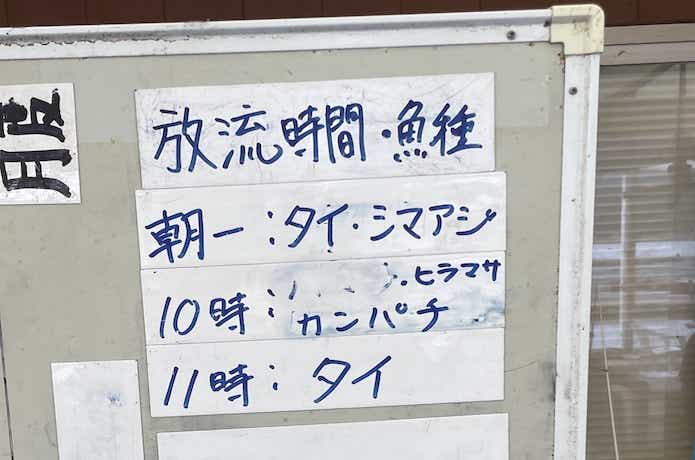 放流時間・魚種
朝一:タイ・シマアジ
10時: ・ヒラマサ
カンパチ
11時:タイ